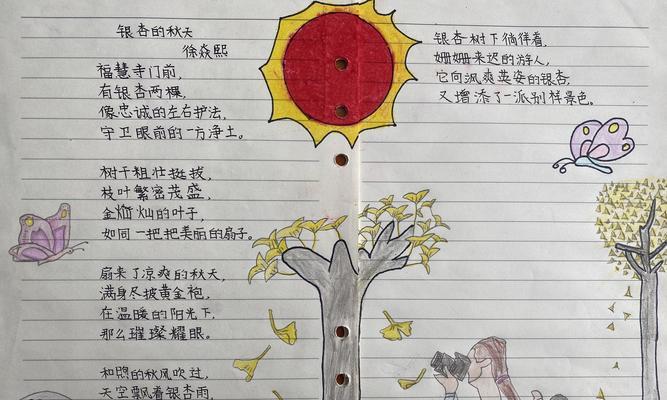 银杏的秋天
徐焱熙
福慧寺门前，
有银杏两棵，
像忠诚的左右护法，
守卫眼前的一方净土。
树干粗壮挺拔，
枝叶繁密茂盛，
金灿灿的叶子，
如同一把把美丽的扇子。
扇来了凉爽的秋天，
满身尽披黄金袍，
在温暖的阳光下，
那么璀璨耀眼。
和煦的秋风吹过，
天空飘着银杏雨，
银杏树下徜徉着，
姗姗来迟的游人，
它向飒爽英姿的银杏，
又增添了一派别样景色。